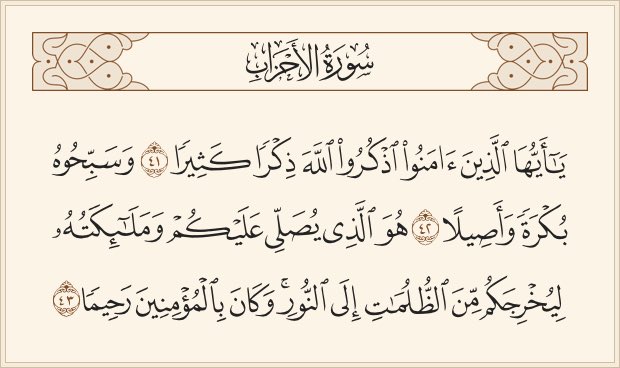 سُورَةُ الأَحْزَابِ
يَٰٓأَيُّهَا ٱلَّذِينَ ءَامَنُوا۟ ٱذْكُرُوا۟ ٱللَّهَ ذِكْرًا كَثِيرًا ٤١ وَسَبِّحُوهُ
بُكْرَةً وَأَصِيلًا ٤٢ هُوَ ٱلَّذِى يُصَلِّى عَلَيْكُمْ وَمَلَٰٓئِكَتُهُۥ
لِيُخْرِجَكُم مِّنَ ٱلظُّلُمَٰتِ إِلَى ٱلنُّورِ ۚ وَكَانَ بِٱلْمُؤْمِنِينَ رَحِيمًا ٤٣